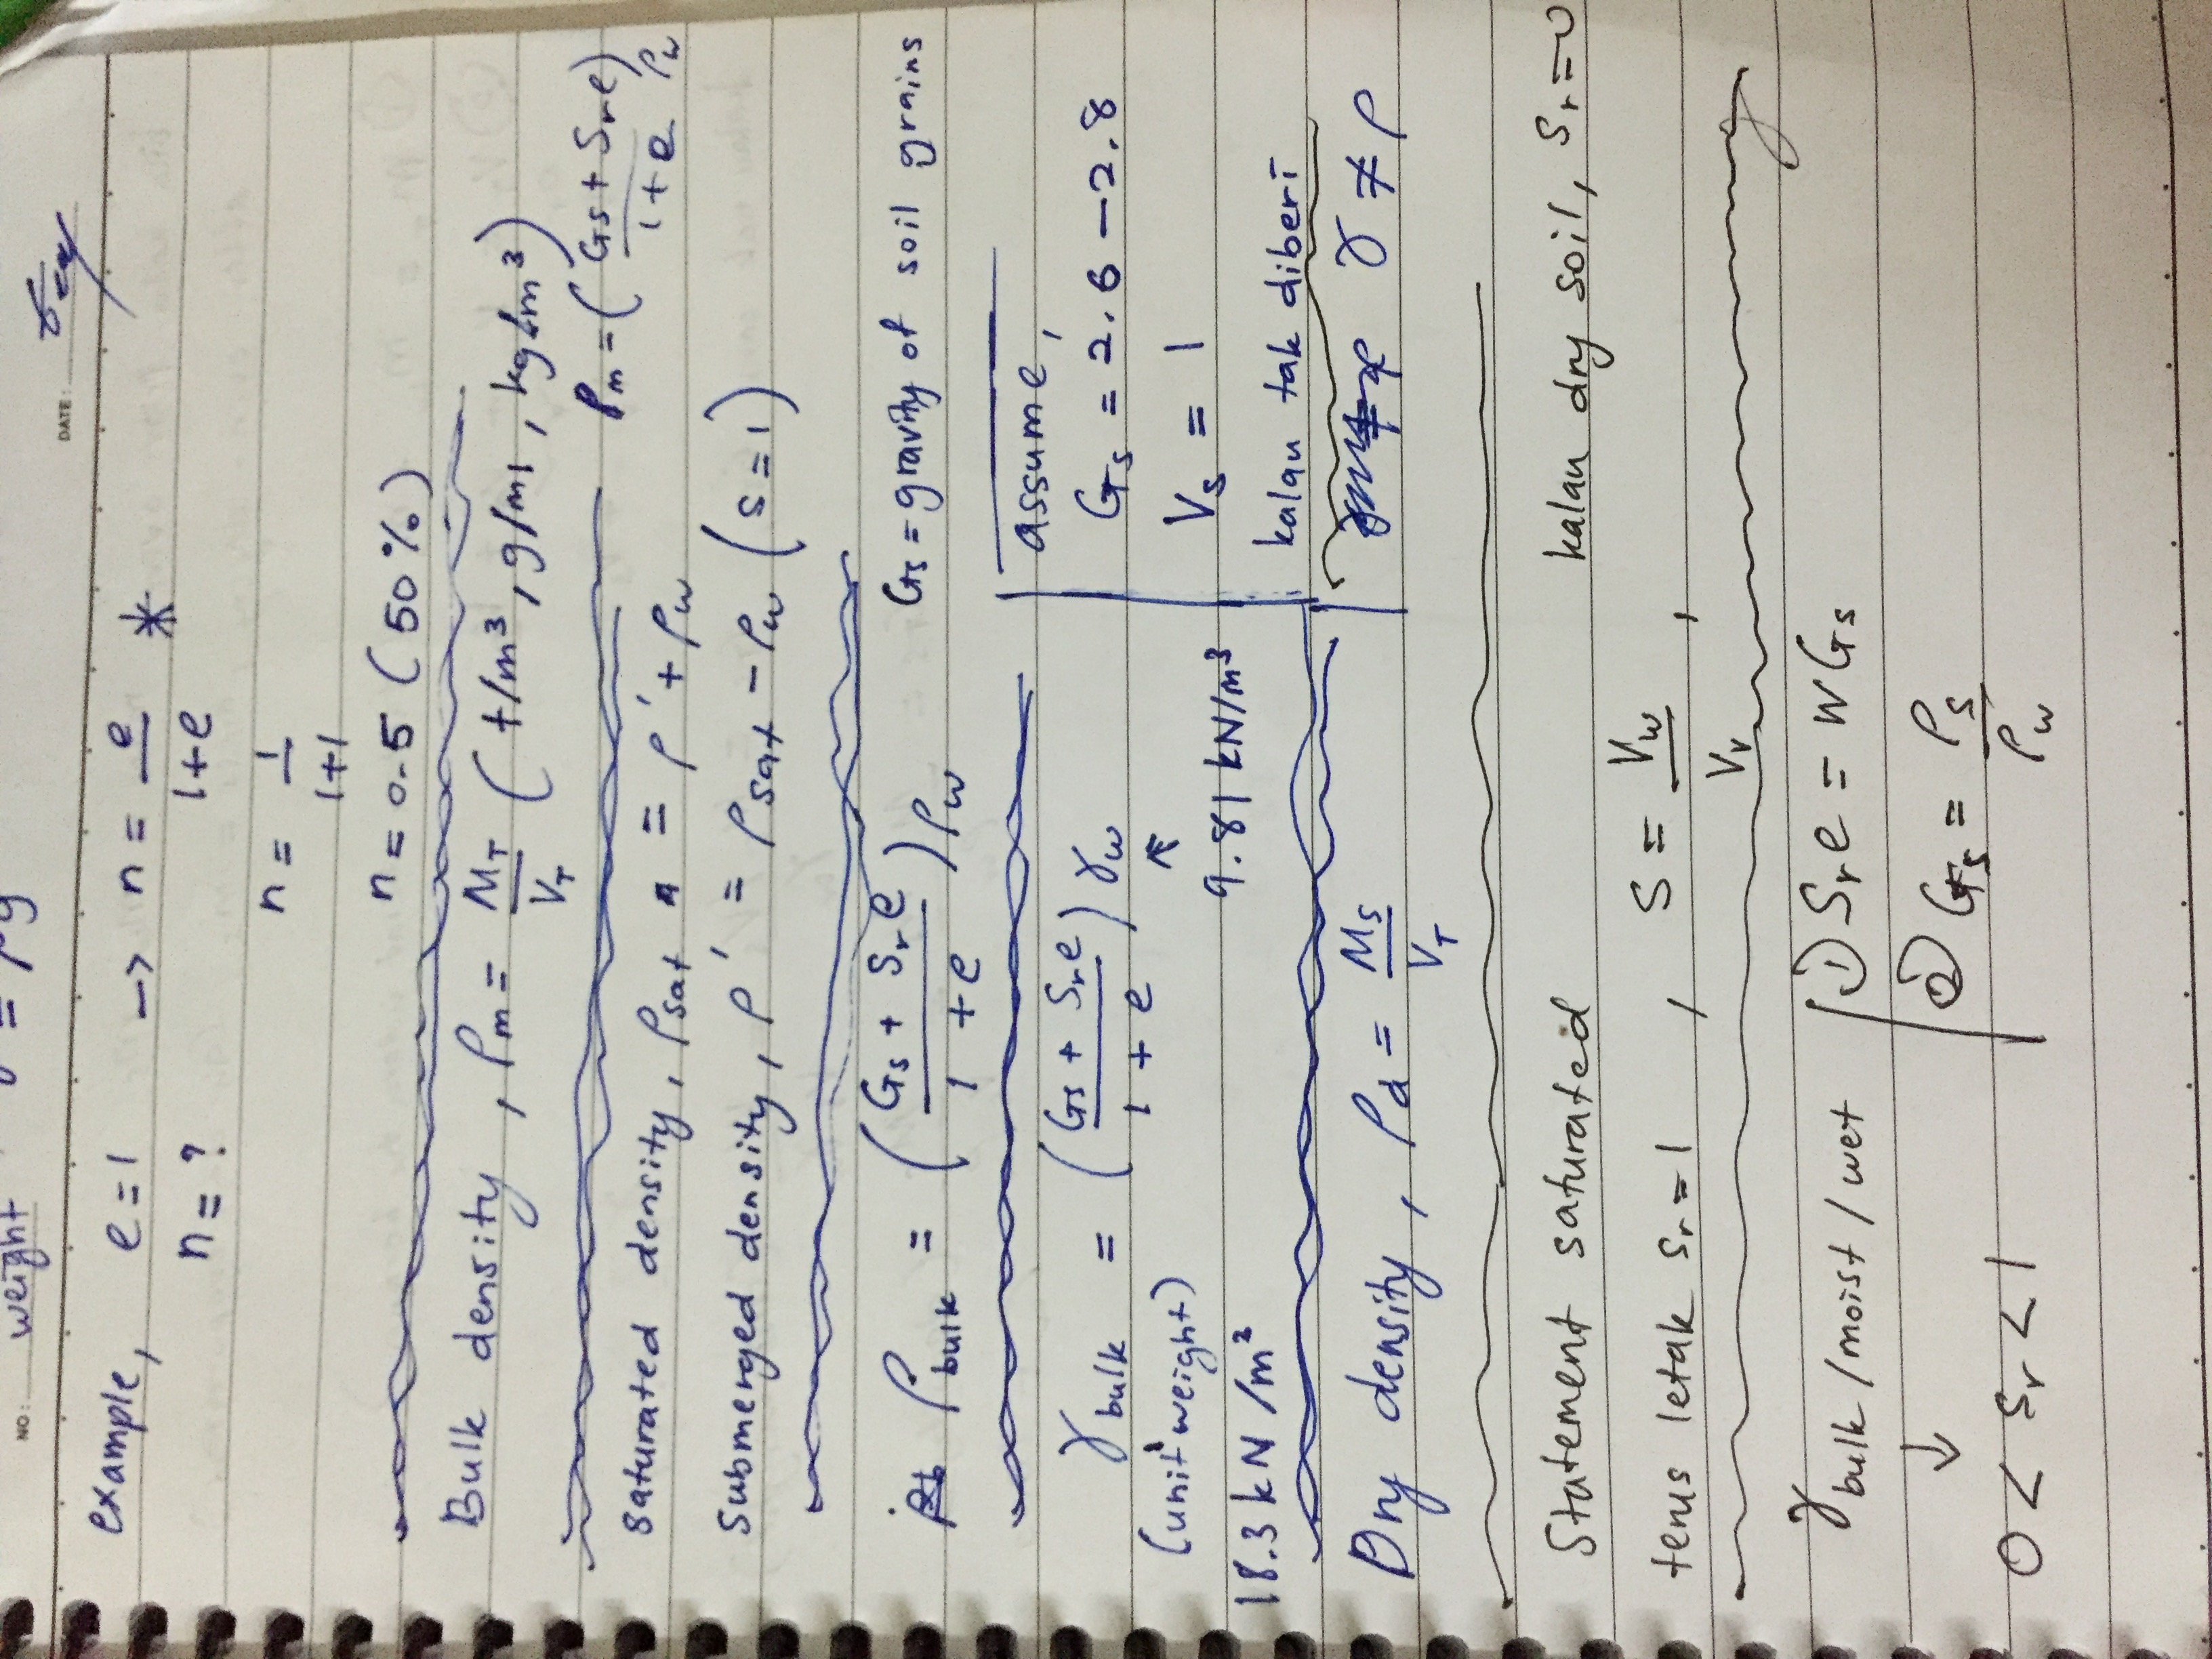 NO: weight = ρg
DATE:
example, e = 1 → n = e / 1+e *
n = ?
n = 1 / 1+1
n = 0.5 (50%)
Bulk density, ρm = MT / VT (t/m³, g/ml, kg/m³)
ρm = (Gs + Sre / 1 + e) ρw
Saturated density, ρsat = ρ' + ρw
Submerged density, ρ' = ρsat − ρw (S = 1)
ρbulk = (Gs + Sre / 1 + e) ρw
Gs = gravity of soil grains
γbulk = (Gs + Sre / 1 + e) γw
(unit weight)
9.81 kN/m³
18.3 kN/m²
assume,
Gs = 2.6 − 2.8
Vs = 1
kalau tak diberi
γ ≠ ρ
Dry density, ρd = Ms / VT
Statement saturated kalau dry soil, Sr = 0
terus letak Sr = 1 , S = Vw / Vv ,
γbulk / moist / wet ① Sre = wGs
↓ ② Gs = ρs / ρw
0 < Sr < 1